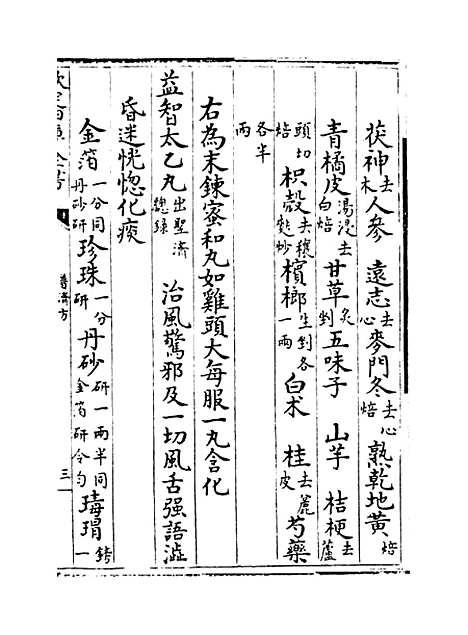 茯神去木人參 遠志去心麥門冬去心焙 熟乾地黄焙
青橘皮湯浸去白焙 甘草炙剉五味子 山芋 桔梗去蘆
頭切焙 枳殼去穰麩炒檳榔生剉各一兩 白术 桂去麄皮 芍藥
各半兩
右為末鍊蜜和丸如雞頭大每服一丸含化
益智太乙丸出聖濟總錄 治風驚邪及一切風舌强語澁
昏迷恍惚化痰
金箔一分同丹砂研 珍珠一分研 丹砂研一兩半同金箔研令勻 瑇瑁鎊一
普濟方
三